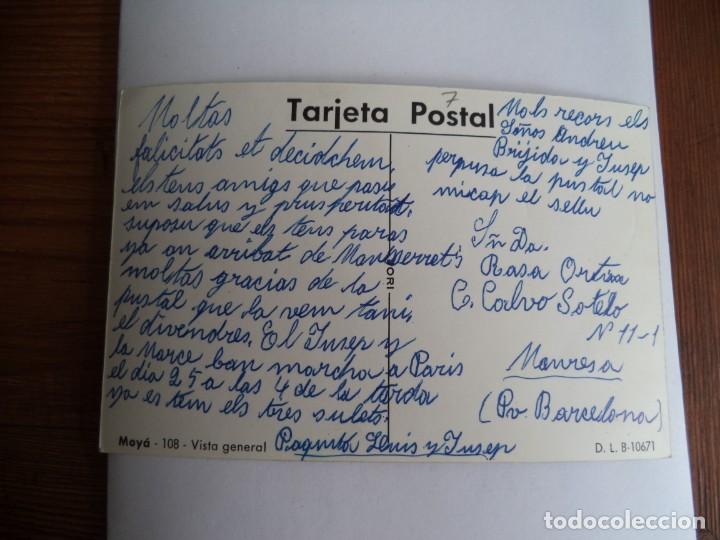 Tarjeta Postal
7
Moltas
falicitats et decidchem,
els tens amigs que pasis
em salus y prusperitat.
suposu que els tens paras
ya an arribat de Montserrat's
moltas gracias de la
pustal que la vem tani
el divendres. El Jusep y
la Merce ban marcha a Paris
el dia 25 a las 4 de la tarda
ya es tem els tres sulets.
Paquita Lluis y Jusep
Mols recors els
Soños Andreu
Brijida y Jusep
perpusa la pustal no
micap el sellu
Sñ Da.
Rasa Ortixa
C. Calvo Sotelo
Nº 11-1
Manresa
(Pv. Barcelona)
DORI
Moyá - 108 - Vista general
D. L. B-10671
todocoleccion
todocoleccion.net